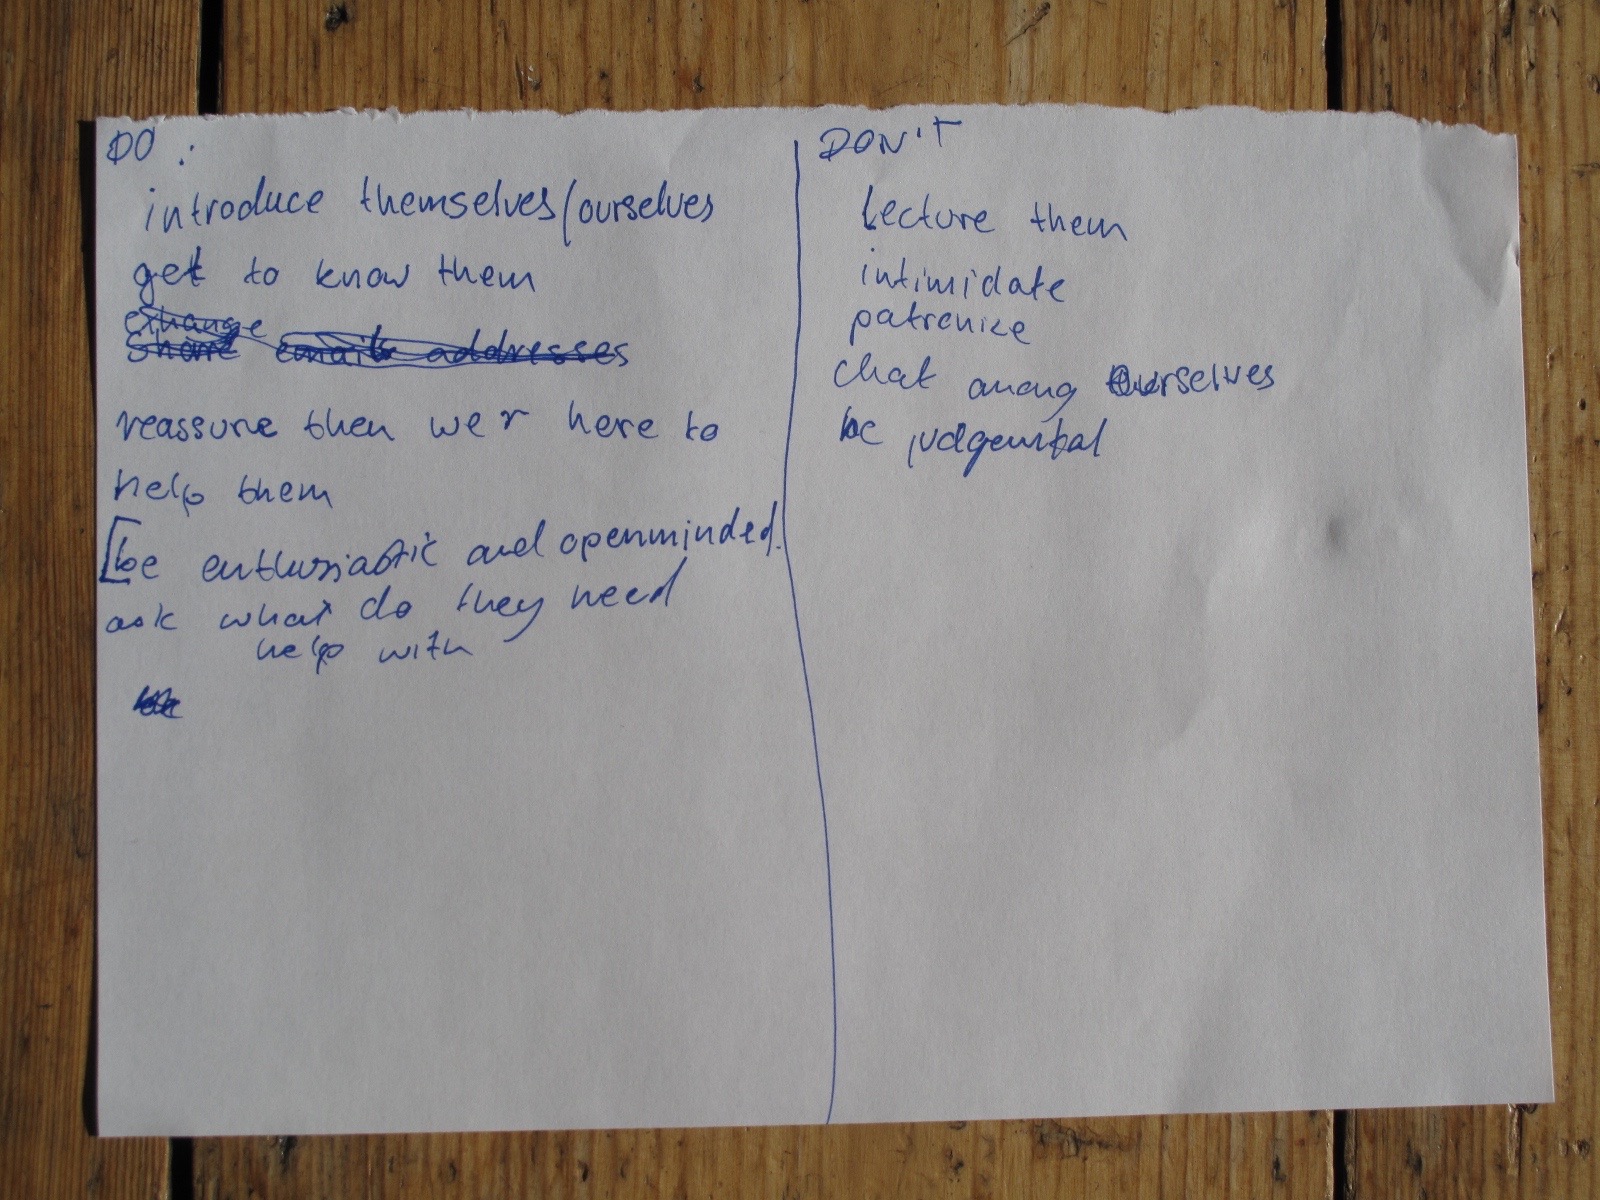 DO :
introduce themselves/ourselves
get to know them
exhange
share emails addresses
reassure then we r here to
help them
[be enthusiastic and openminded.
ask what do they need
help with
DON'T
Lecture them
intimidate
patronize
chat among ourselves
be judgemental